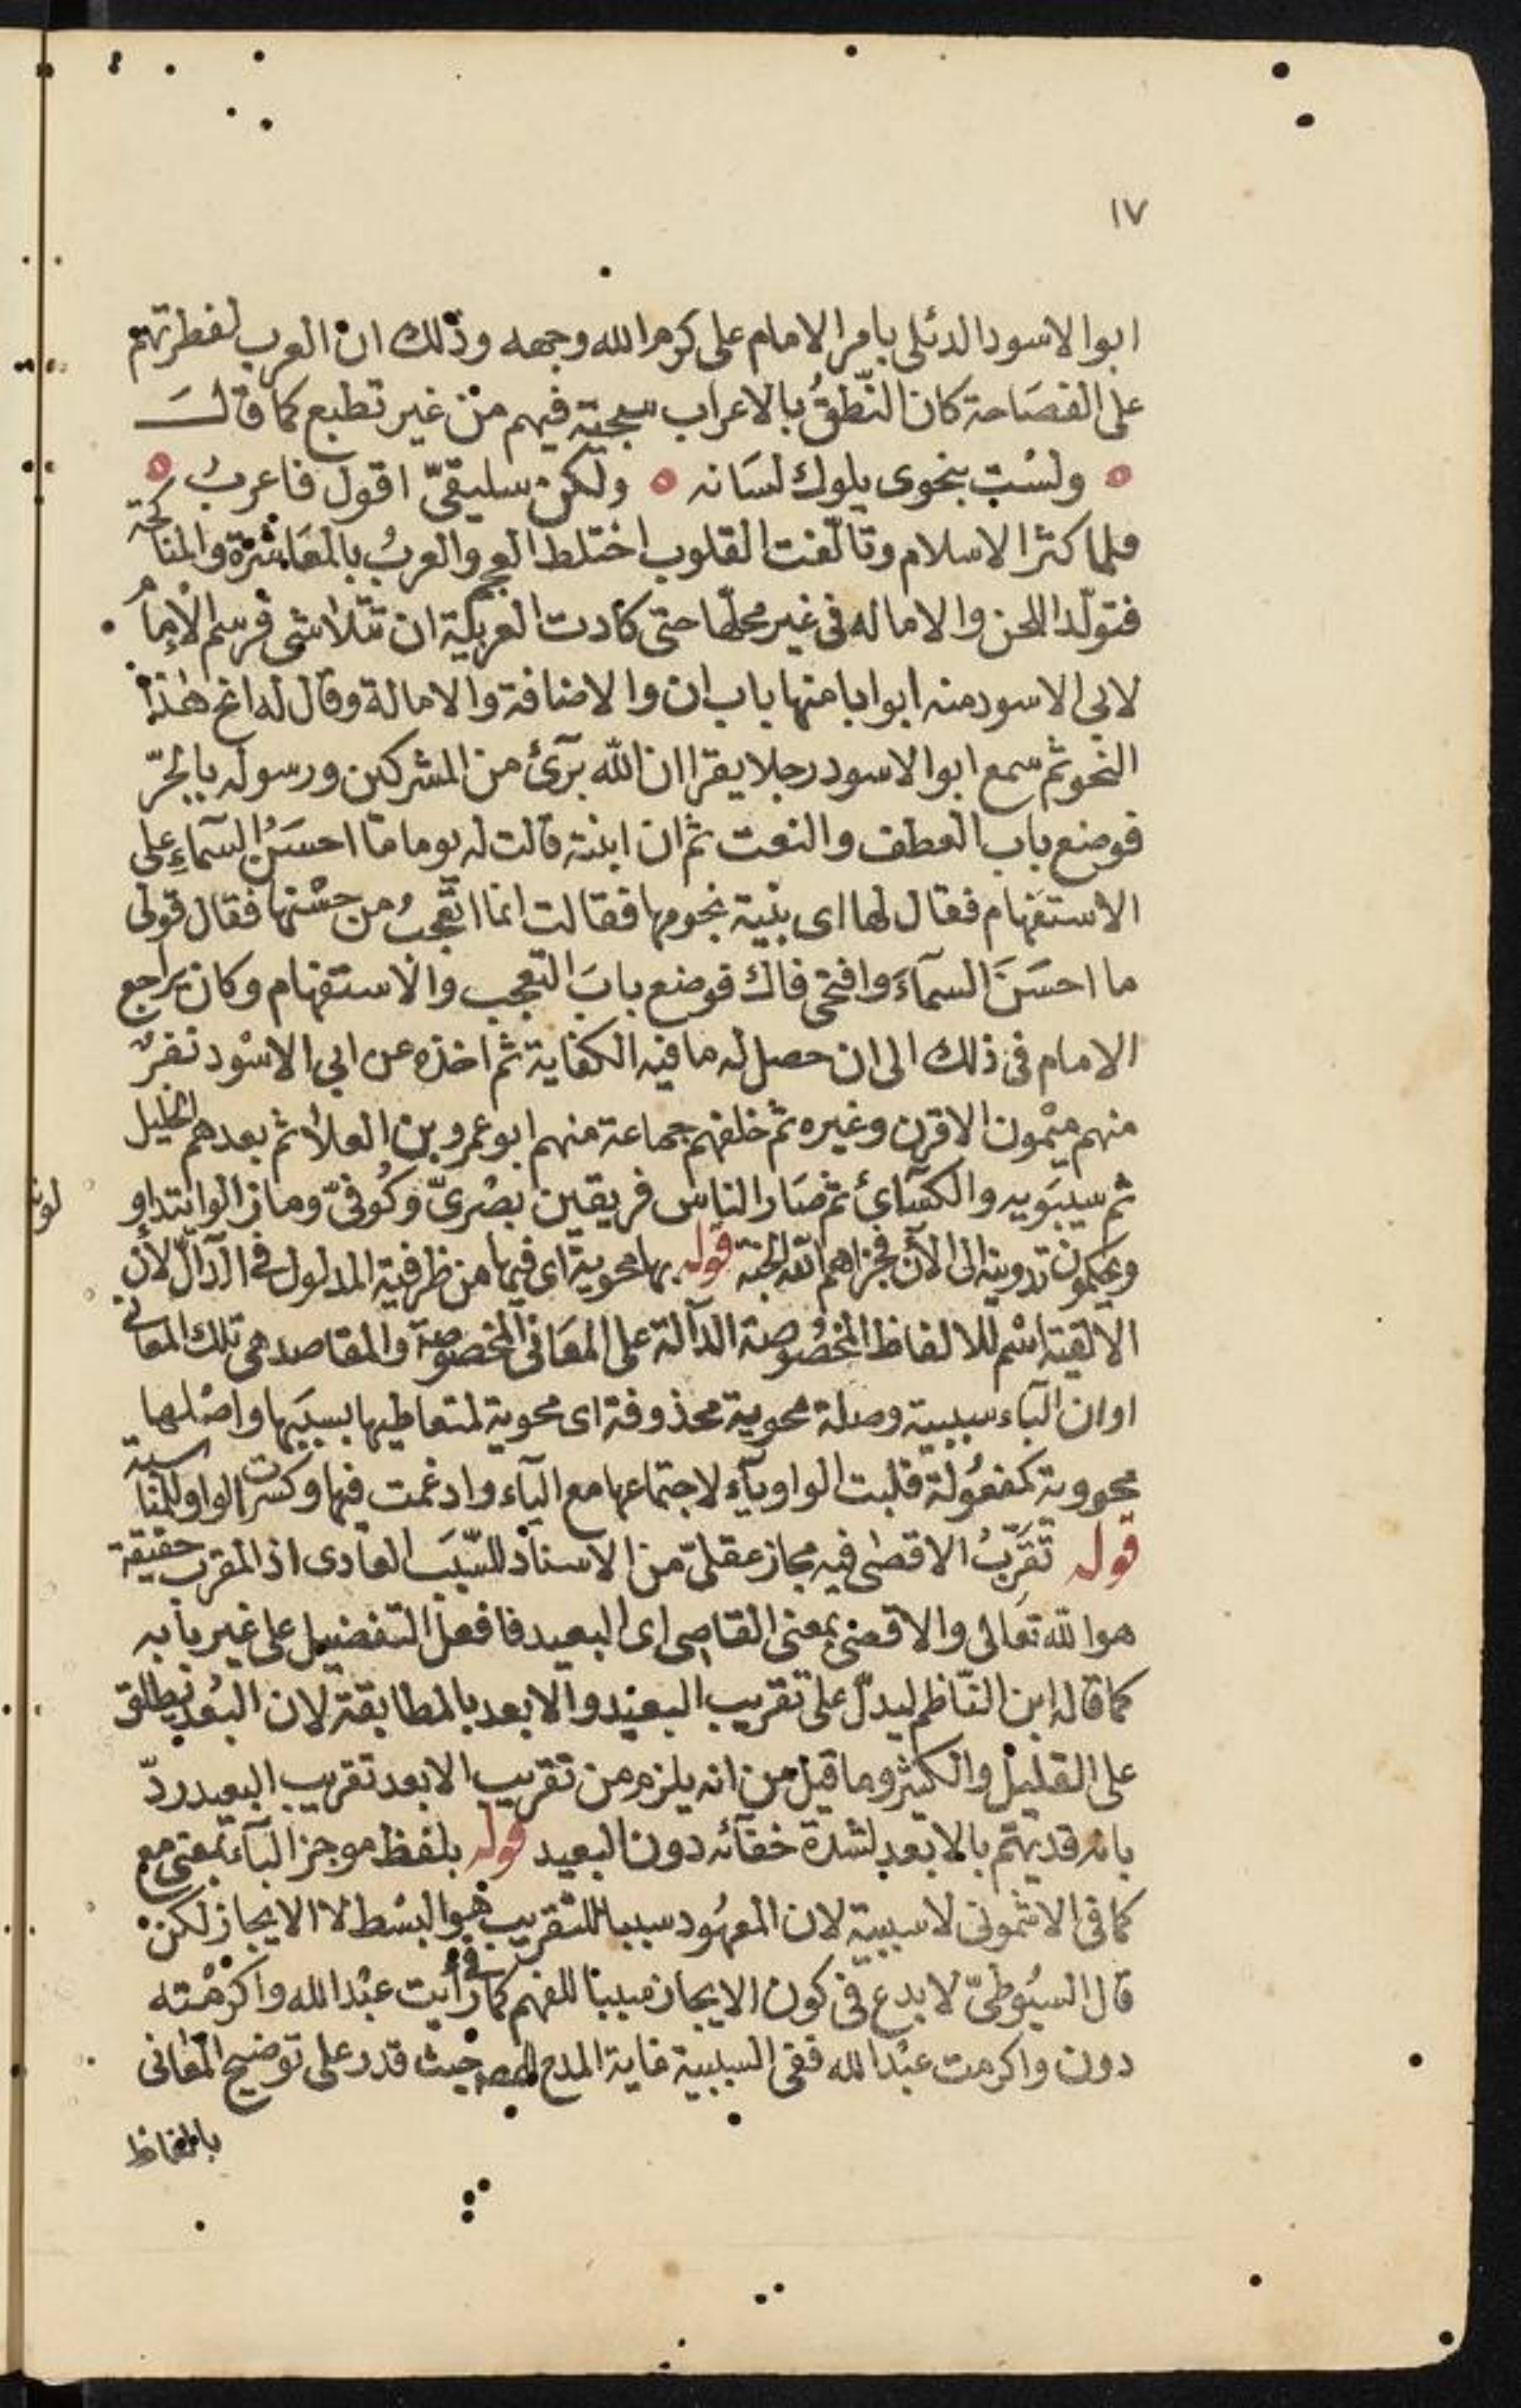 ١٧
ابوا الاسود الدئلى بامر الامام على كرم الله وجهه وذلك ان العرب لفطرتهم
على الفصَاحة كان النّطقُ بالاعراب سجية فيهم من غير تطبع كما قالــَ
ه ولسْت بنحوى يلوك لسَانه ه ولكن سليقىّ اقول فاعربُ ه
فلما كثر الاسلام وتالّفت القلوب اختلط العجم والعربُ بالمعَاشرة والمناكحة
فتولّد اللحن والاماله فى غير محلّها حتى كادت العربيّة ان تتلاشى فرسم الْاِمامُ
لابى الاسود منه ابوابا منها باب ان والاضافة والامالة وقال له انح هٰذا
النحو ثم سمع ابوا الاسود رجلا يقرا ان اللّه برٓئ من المشركين ورسوله بالجرّ
فوضع باب العطف والنعت ثم ان ابنته قالت له يوما مّا احسَنُ السّماءِ على
الاستفهام فقال لها اى بنية نجومها فقالت انما اتعجبُ من حسْنها فقال قولى
ما احسَنَ السمآءَ وافتحى فاك فوضع بابَ التعجب والاستفهام وكان يراجع
الامام فى ذلك الى ان حصل له ما فيه الكفاية ثم اخذه عن ابي الاسْود نفرٌ
منهم ميْمون الاقرن وغيره ثم خلفهم جماعة منهم ابو عمرو بن العلا ثم بعدهم الخليل
ثم سيبَويه والكسَائ ثم صَار الناس فريقين بصْرىّ وكُوفىّ وما زالوا يتداو
ويحكمون تدوينه الى الاٰن فجزاهم الله الجنة قوله بها محوية اى فيها من ظرفية المدلول فى الدّالّ لان
الالفية اسْم للالفاظ المخصُوصة الدآلة على المعَانى المخصوصة والمقاصد هى تلك المعانى
او ان البآء سببية وصلة محوية محذوفة اى محوية لمتعاطيها بسببَها واصْلها
محووية كمفعُولة قلبت الواو يآء لاجتماعها مع اليآء وادغمت فيها وكسرت الواو للمناسبة
قوله تُقَرّبُ الاقصٰى فيه مجاز عقلىّ من الاسناد للسّبَب العَادى اذ المقرب حقيقة
هو الله تعَالى والاقصٰى بمعنى القاصى اى البعيد فافعل التفضيل على غير بابه
كما قاله ابن النّاظم ليدلّ على تقريب البعيْد والابعد بالمطابقة لان البُعْد يطلق
على القليل والكثير وما قيل من انه يلزم من تقريب الابعد تقريب البعيد ردّ
بانه قد يهتم بالابعد لشدة خفآئه دون البعيد قوله بلفظ موجز البآء بمعنى مع
كما فى الاشمونى لا سببية لان المعهُود سببا للتقريب هو البسْط لا الايجاز لكن
قال السيُوطىّ لا بدع فى كون الايجاز سببا للفهم كما فى رأيت عبْد الله واكرمْته
دون واكرمت عبْد الله ففى السببية غاية المدح للمص حيث قدر على توضيح المعَانى
بالفاظ